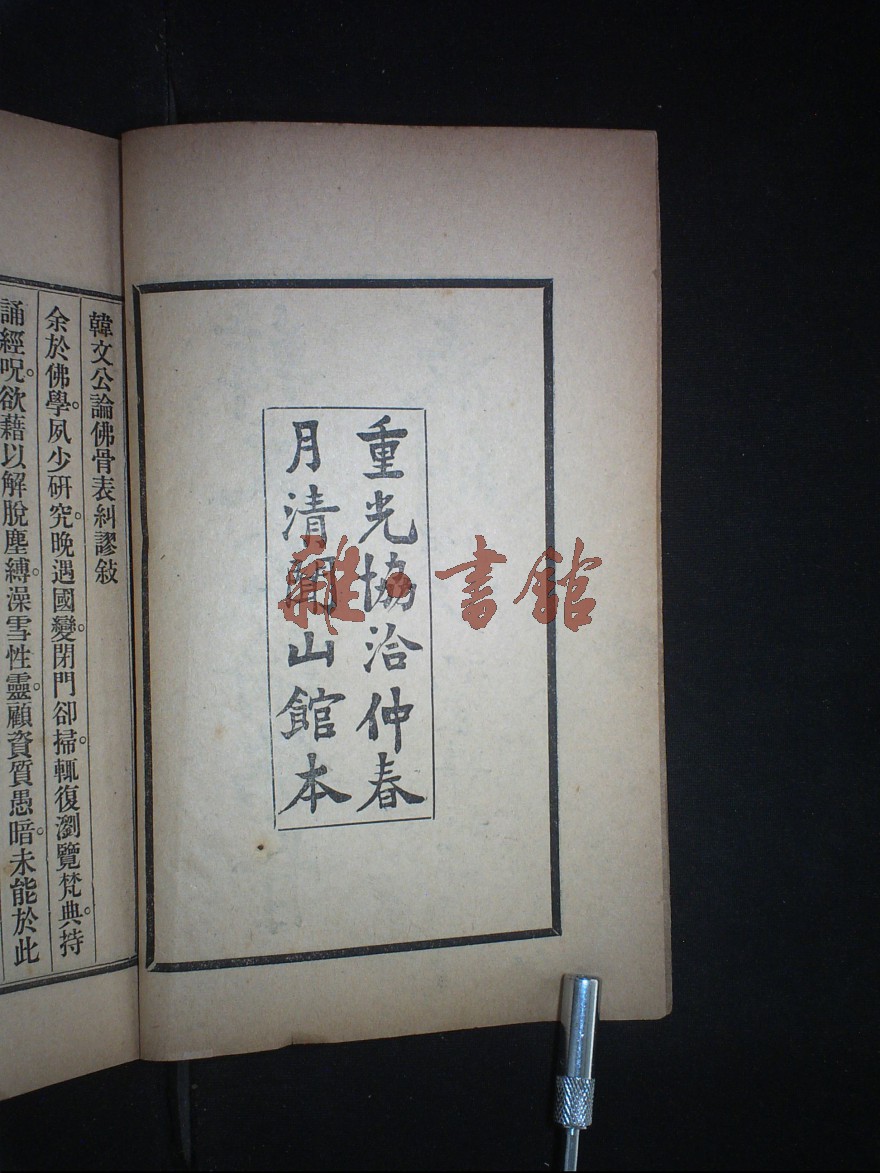 重光協洽仲春
月清山館本
雜·書館
韓文公論佛骨表糾謬敍
余於佛學。夙少研究。晚遇國變。閉門卻掃。輒復瀏覽梵典。持
誦經呪。欲藉以解脫塵縛。澡雪性靈。顧資質愚暗。未能於此